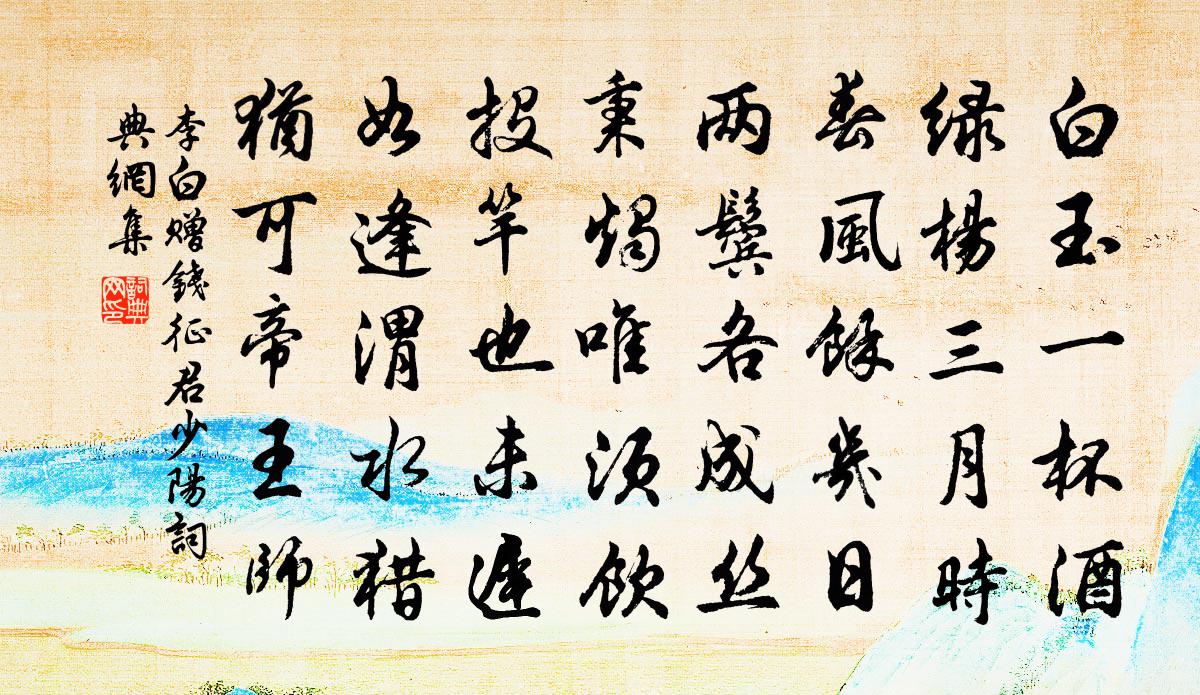 白玉一杯酒
绿杨三月時
春風餘幾日
两鬓各成丝
秉燭唯须饮
投竿也未遲
如逢渭水猎
猶可帝王師
李白赠錢征君少陽詞
典網集
詞典
网印